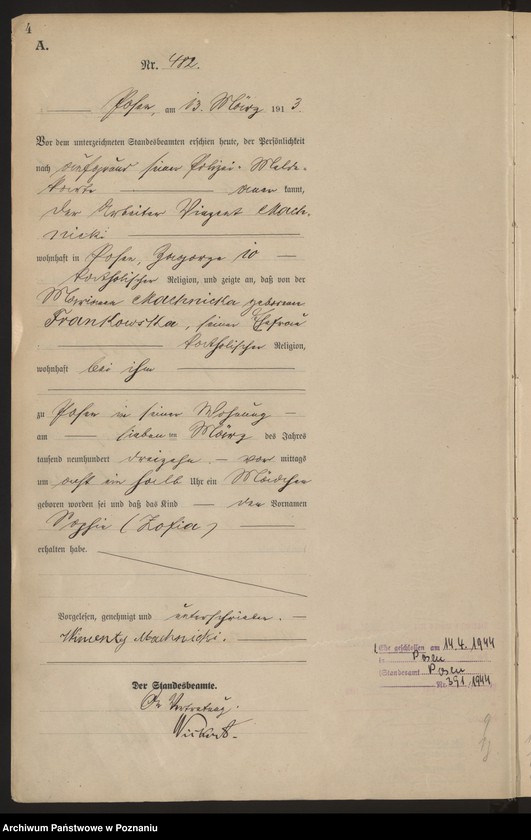 4
A.
Nr. 482.
Posen, am 13. März 1913
Vor dem unterzeichneten Standesbeamten erschien heute, der Persönlichkeit
nach aufgrund seiner Polizei-Melde-
karte kannt,
der Arbeiter Vinzent Mach-
nicki
wohnhaft in Posen, Zagorze 10
katholischer Religion, und zeigte an, daß von der
Marianna Machnicka geborenen
Frankowska, seiner Ehefrau
katholischer Religion,
wohnhaft bei ihm
zu Posen in seiner Wohnung
am sieben ten März des Jahres
tausend neunhundert dreizehn vor mittags
um acht ein halb Uhr ein Mädchen
geboren worden sei und daß das Kind den Vornamen
Sophie (Zofia)
erhalten habe.
Vorgelesen, genehmigt und unterschrieben.
Wincenty Machnicki.
Der Standesbeamte.
In Vertretung.
Ehe geschlossen am 14.4.1944
Posen
Standesamt Posen
Nr. 391/1944
Archiwum Państwowe w Poznaniu